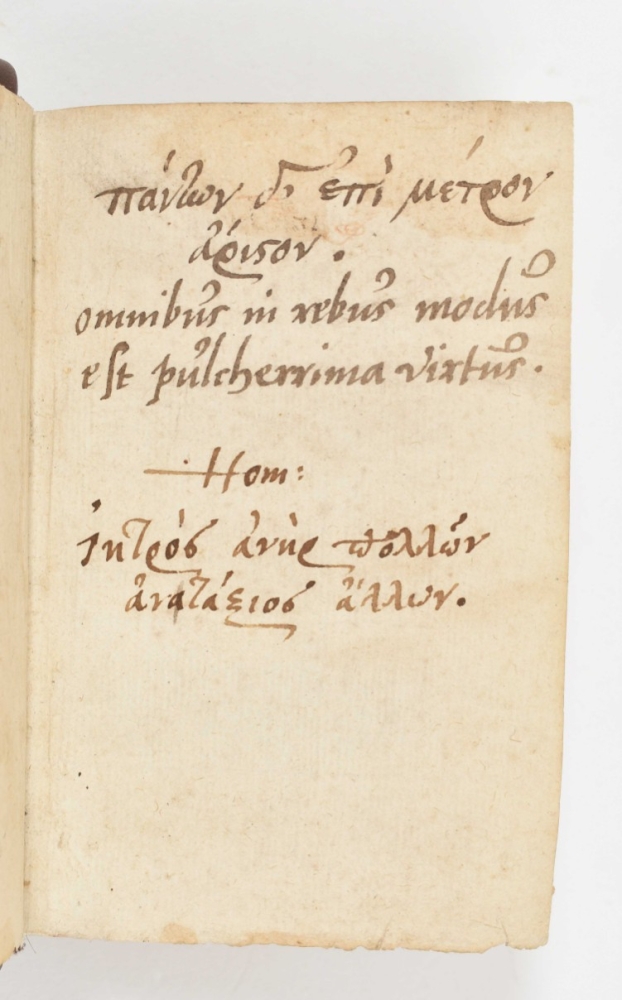 πάντων δ' ἐπὶ μέτρον
ἄριςον.
omnibus in rebus modus
est pulcherrima virtus.
Hom:
ἰητρὸς ἀνὴρ πολλῶν
ἀνατάξιος ἄλλων.